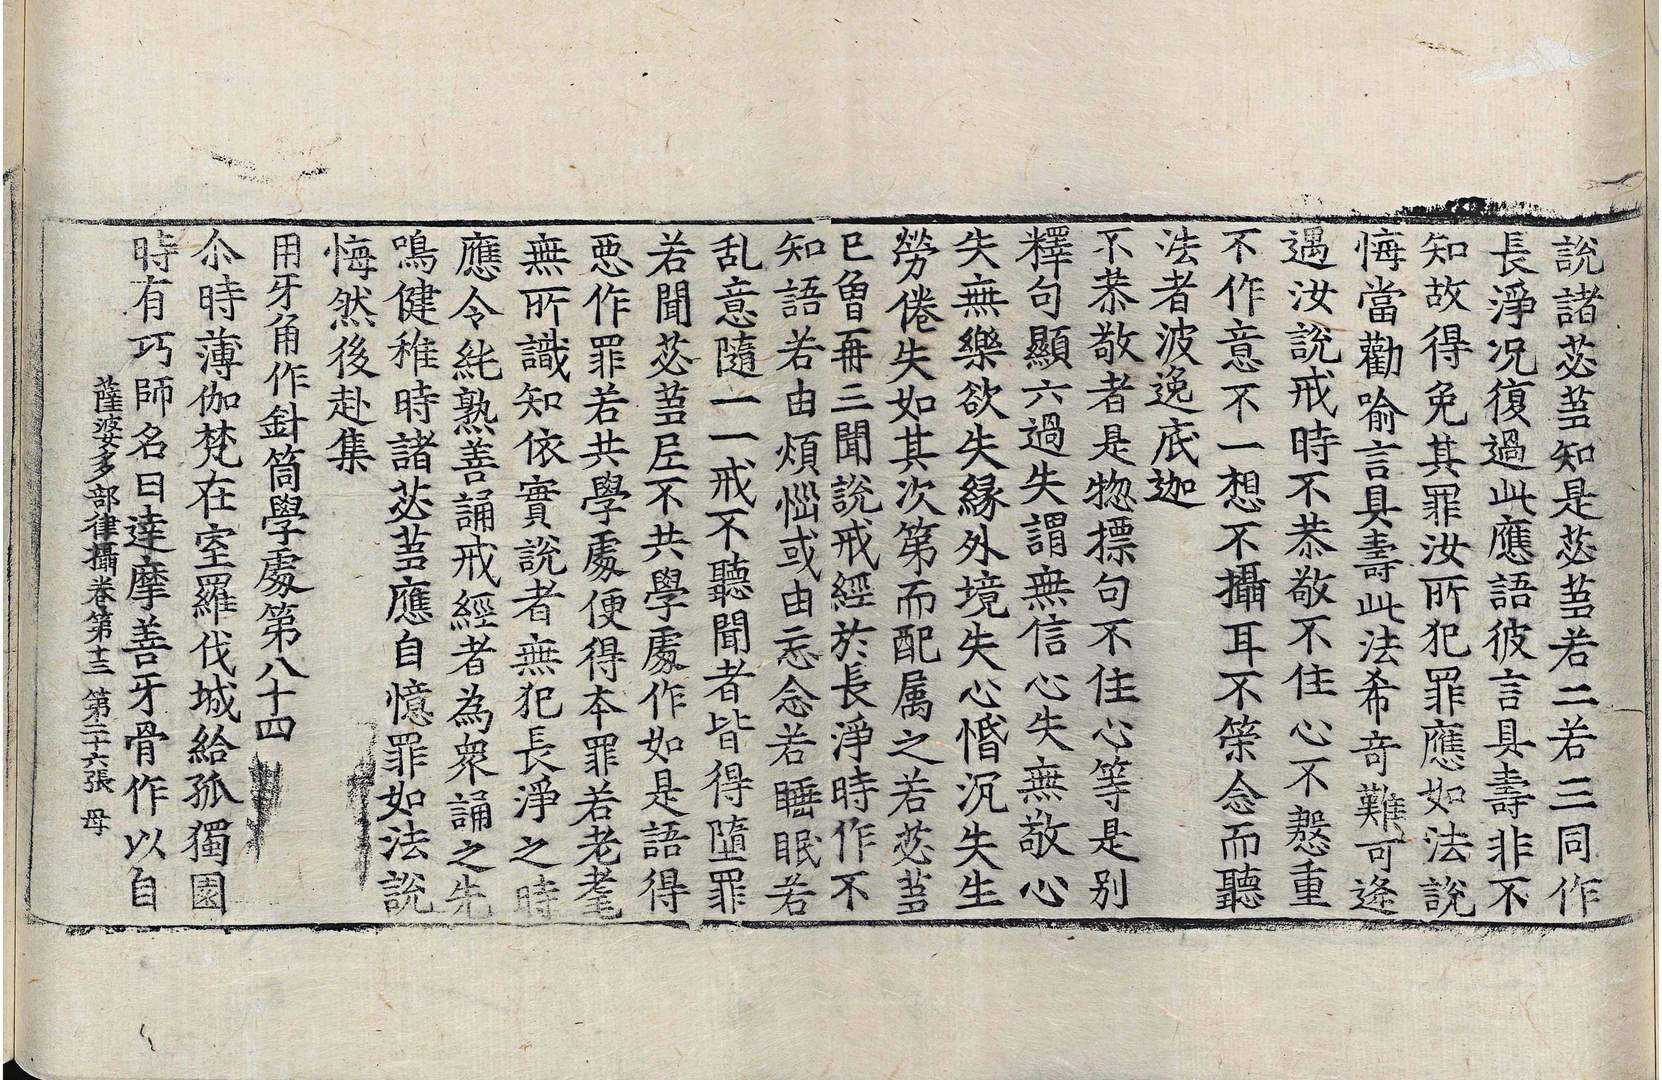 說諸苾蒭知是苾蒭若二若三同作
長淨况復過此應語彼言具壽非不
知故得免其罪汝所犯罪應如法說
悔當勸喻言具壽此法希奇難可逢
遇汝說戒時不恭敬不住心不慇重
不作意不一想不攝耳不䇿念而聽
法者波逸底迦
不恭敬者是惣摽句不住心等是別
釋句顯六過失謂無信心失無敬心
失無樂欲失緣外境失心惛沉失生
勞倦失如其次第而配属之若苾蒭
已曾再三聞說戒經於長淨時作不
知語若由煩惱或由忘念若睡眠若
乱意隨一一戒不聽聞者皆得墮罪
若聞苾蒭尼不共學處作如是語得
惡作罪若共學處便得本罪若老耄
無所識知依實說者無犯長淨之時
應令純熟善誦戒經者為衆誦之先
鳴健稚時諸苾蒭應自憶罪如法說
悔然後赴集
用牙角作針筒學處第八十四
尒時薄伽梵在室羅伐城給孤獨園
時有巧師名曰達摩善牙骨作以自
薩婆多部律攝卷第十三 第二十六張 母